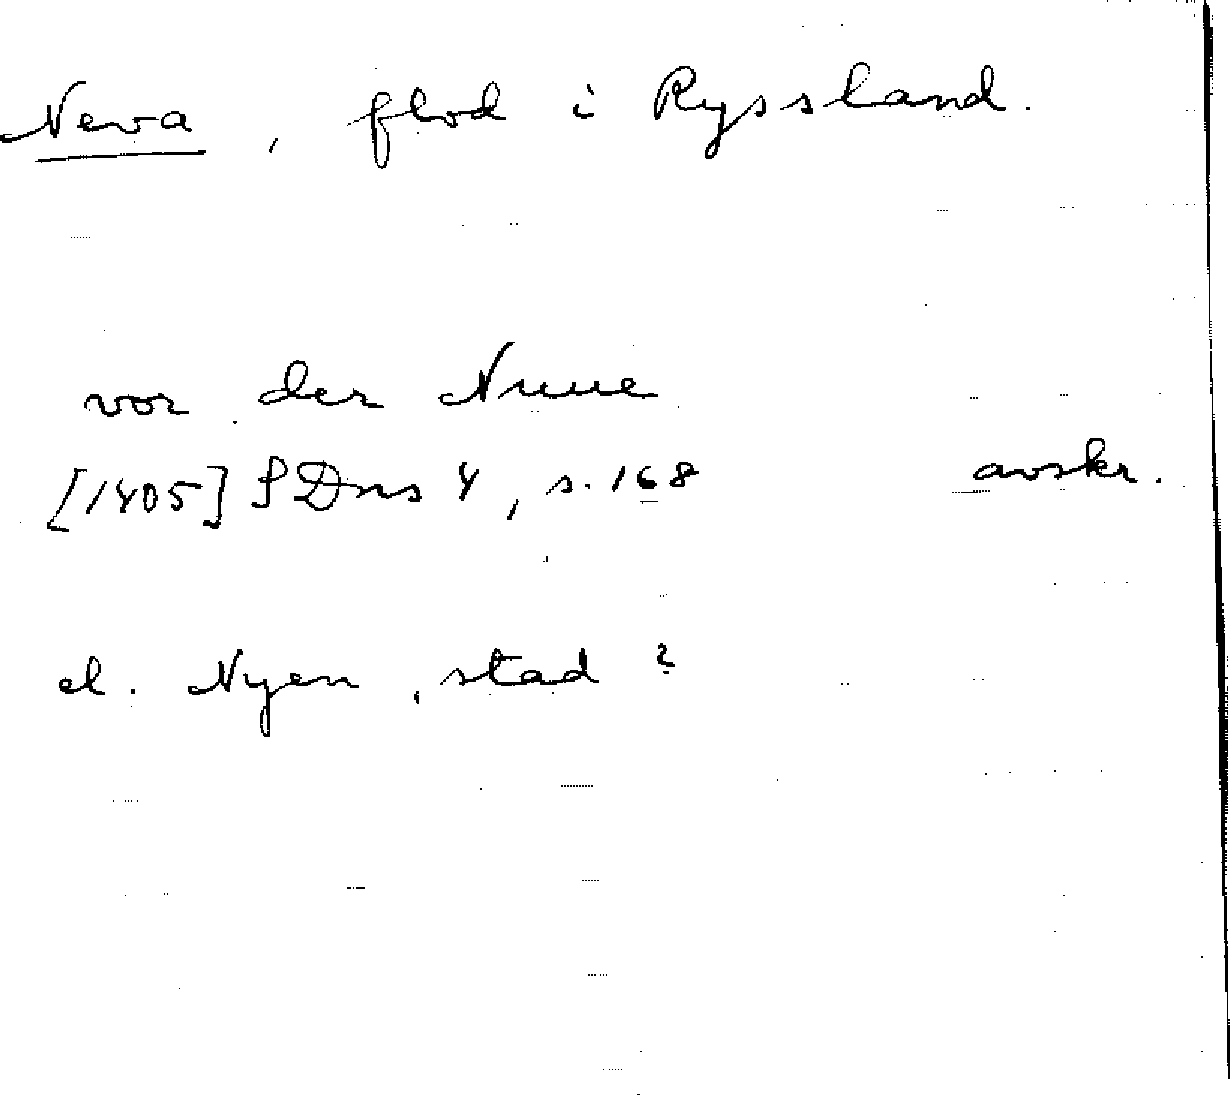 Neva, flod i Ryssland.
vor der Nuue
[1405] SDns 4, s. 168 avskr.
el. Nyen, stad?